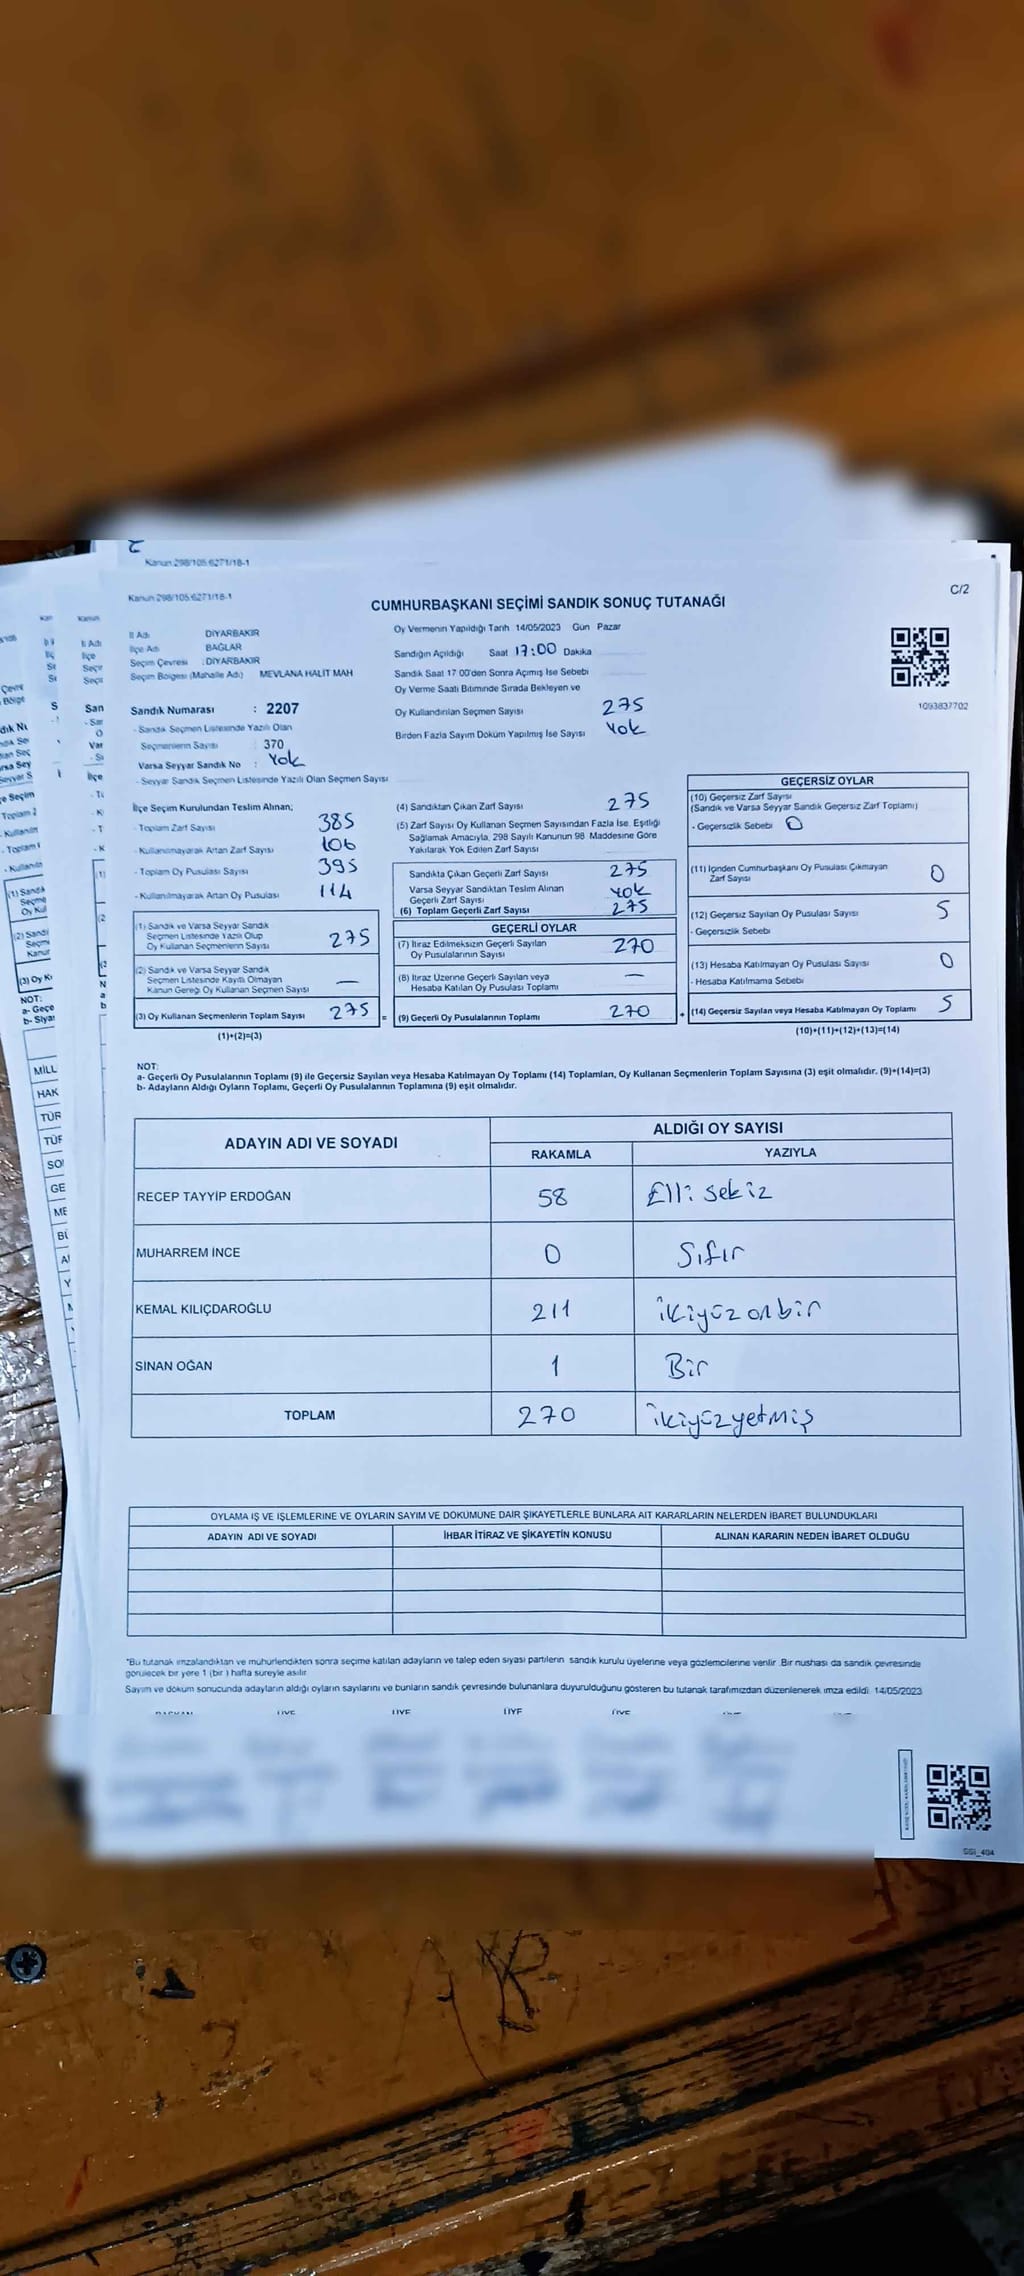 Kanun:298/105.6271/18-1
Kanun:298/105.6271/18-1
C/2
CUMHURBAŞKANI SEÇİMİ SANDIK SONUÇ TUTANAĞI
İl Adı DİYARBAKIR
İlçe Adı BAĞLAR
Seçim Çevresi : DİYARBAKIR
Seçim Bölgesi (Mahalle Adı) MEVLANA HALİT MAH
Oy Vermenin Yapıldığı Tarih 14/05/2023 Gün Pazar
Sandığın Açıldığı Saat 17:00 Dakika
Sandık Saat 17 00'den Sonra Açımış İse Sebebi
Oy Verme Saati Bitiminde Sırada Bekleyen ve
Oy Kullandırılan Seçmen Sayısı 275
Birden Fazla Sayım Döküm Yapılmış İse Sayısı Yok
1093837702
Sandık Numarası : 2207
- Sandık Seçmen Listesinde Yazılı Olan
Seçmenlerin Sayısı : 370
Varsa Seyyar Sandık No : Yok
- Seyyar Sandık Seçmen Listesinde Yazılı Olan Seçmen Sayısı
İlçe Seçim Kurulundan Teslim Alınan;
- Toplam Zarf Sayısı 385
- Kullanılmayarak Artan Zarf Sayısı 106
- Toplam Oy Pusulası Sayısı 395
- Kullanılmayarak Artan Oy Pusulası 114
(1) Sandık ve Varsa Seyyar Sandık
Seçmen Listesinde Yazılı Olup
Oy Kullanan Seçmenlerin Sayısı 275
(2) Sandık ve Varsa Seyyar Sandık
Seçmen Listesinde Kayıtlı Olmayan
Kanun Gereği Oy Kullanan Seçmen Sayısı —
(3) Oy Kullanan Seçmenlerin Toplam Sayısı 275 =
(1)+(2)=(3)
(4) Sandıktan Çıkan Zarf Sayısı 275
(5) Zarf Sayısı Oy Kullanan Seçmen Sayısından Fazla İse, Eşitliği
Sağlamak Amacıyla, 298 Sayılı Kanunun 98 Maddesine Göre
Yakılarak Yok Edilen Zarf Sayısı
Sandıkta Çıkan Geçerli Zarf Sayısı 275
Varsa Seyyar Sandıktan Teslim Alınan
Geçerli Zarf Sayısı Yok
(6) Toplam Geçerli Zarf Sayısı 275
GEÇERLİ OYLAR
(7) İtiraz Edilmeksizin Geçerli Sayılan
Oy Pusulalarının Sayısı 270
(8) İtiraz Üzerine Geçerli Sayılan veya
Hesaba Katılan Oy Pusulası Toplamı —
(9) Geçerli Oy Pusulalarının Toplamı 270 +
GEÇERSİZ OYLAR
(10) Geçersiz Zarf Sayısı
(Sandık ve Varsa Seyyar Sandık Geçersiz Zarf Toplamı)
- Geçersizlik Sebebi 0
(11) İçinden Cumhurbaşkanı Oy Pusulası Çıkmayan
Zarf Sayısı 0
(12) Geçersiz Sayılan Oy Pusulası Sayısı 5
- Geçersizlik Sebebi
(13) Hesaba Katılmayan Oy Pusulası Sayısı 0
- Hesaba Katılmama Sebebi
(14) Geçersiz Sayılan veya Hesaba Katılmayan Oy Toplamı 5
(10)+(11)+(12)+(13)=(14)
NOT:
a- Geçerli Oy Pusulalarının Toplamı (9) ile Geçersiz Sayılan veya Hesaba Katılmayan Oy Toplamı (14) Toplamları, Oy Kullanan Seçmenlerin Toplam Sayısına (3) eşit olmalıdır. (9)+(14)=(3)
b- Adayların Aldığı Oyların Toplamı, Geçerli Oy Pusulalarının Toplamına (9) eşit olmalıdır.
ADAYIN ADI VE SOYADI ALDIĞI OY SAYISI
RAKAMLA YAZIYLA
RECEP TAYYİP ERDOĞAN 58 Elli sekiz
MUHARREM İNCE 0 Sıfır
KEMAL KILIÇDAROĞLU 211 ikiyüz onbir
SİNAN OĞAN 1 Bir
TOPLAM 270 ikiyüzyetmiş
OYLAMA İŞ VE İŞLEMLERİNE VE OYLARIN SAYIM VE DÖKÜMÜNE DAİR ŞİKAYETLERLE BUNLARA AİT KARARLARIN NELERDEN İBARET BULUNDUKLARI
ADAYIN ADI VE SOYADI İHBAR İTİRAZ VE ŞİKAYETİN KONUSU ALINAN KARARIN NEDEN İBARET OLDUĞU
"Bu tutanak imzalandıktan ve mühürlendikten sonra seçime katılan adayların ve talep eden siyasi partilerin sandık kurulu üyelerine veya gözlemcilerine verilir. Bir nüshası da sandık çevresinde
görülecek bir yere 1 (bir ) hafta süreyle asılır.
Sayım ve döküm sonucunda adayların aldığı oyların sayılarını ve bunların sandık çevresinde bulunanlara duyurulduğunu gösteren bu tutanak tarafımızdan düzenlenerek imza edildi. 14/05/2023
BAŞKAN ÜYE ÜYE ÜYE ÜYE